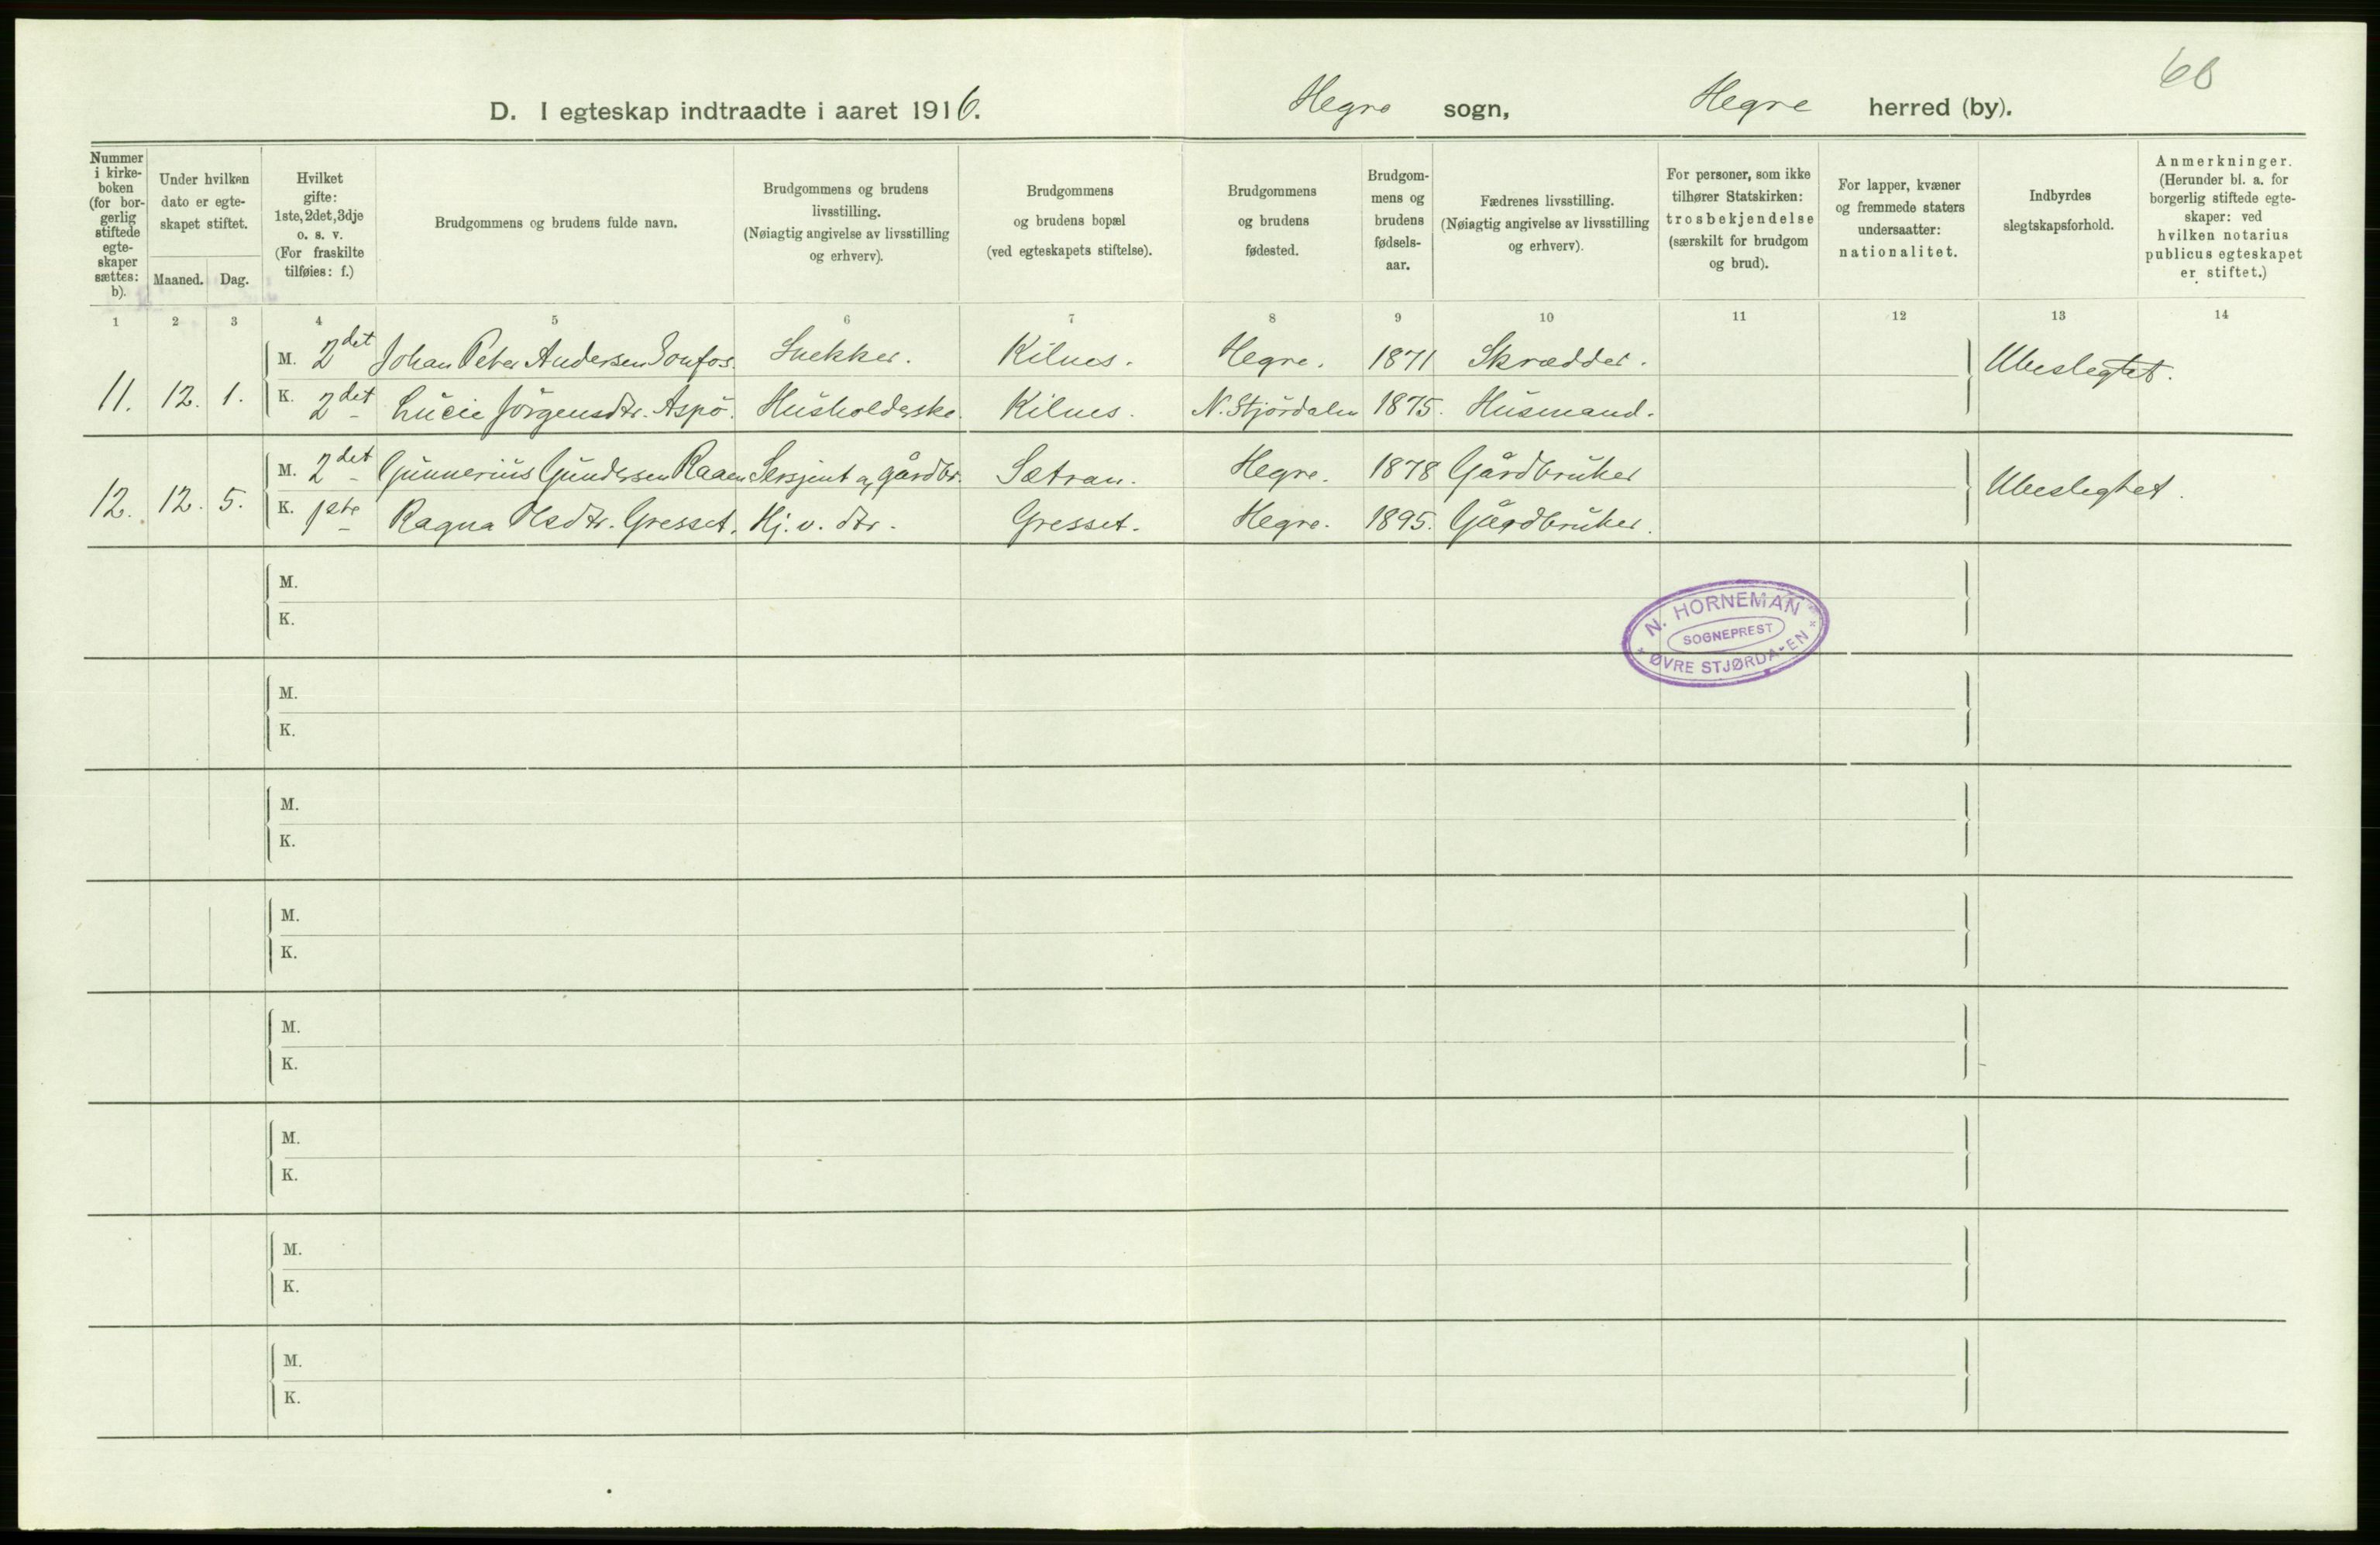 60
D. I egteskap indtraadte i aaret 1916. Hegre sogn, Hegre herred (by).
Nummer
i kirke-
boken
(for bor-
gerlig
stiftede
egte-
skaper
sættes:
b).
Under hvilken
dato er egte-
skapet stiftet.
Maaned. Dag.
Hvilket
gifte:
1ste, 2det, 3dje
o. s. v.
(For fraskilte
tilføies: f.)
Brudgommens og brudens fulde navn.
Brudgommens og brudens
livsstilling.
(Nøiagtig angivelse av livsstilling
og erhverv).
Brudgommens
og brudens bopæl
(ved egteskapets stiftelse).
Brudgommens
og brudens
fødested.
Brudgom-
mens og
brudens
fødsels-
aar.
Fædrenes livsstilling.
(Nøiagtig angivelse av livsstilling
og erhverv).
For personer, som ikke
tilhører Statskirken:
trosbekjendelse
(særskilt for brudgom
og brud).
For lapper, kvæner
og fremmede staters
undersaatter:
nationalitet.
Indbyrdes
slegtskapsforhold.
Anmerkninger.
(Herunder bl. a. for
borgerlig stiftede egte-
skaper: ved
hvilken notarius
publicus egteskapet
er stiftet.)
1 2 3 4 5 6 7 8 9 10 11 12 13 14
M. 2det Johan Peter Andersen Sonfos. Snekker. Kilnes. Hegre. 1871 Skrædder. Ubeslegtet.
11. 12. 1. K. 2det Lucie Jörgensdtr. Aspö. Husholderske. Kilnes. N. Stjördalen 1875. Husmand.
M. 2det Gunnerius Gundersen Raaen Sersjent og gårdbr. Sætran. Hegre. 1878 Gårdbruker Ubeslegtet.
12. 12. 5. K. 1ste Ragna Olsdtr. Gresset. Hj. v. dtr. Gresset. Hegre. 1895. Gårdbruker.
M.
K.
N. HORNEMAN
SOGNEPREST
ØVRE STJØRDALEN
M.
K.
M.
K.
M.
K.
M.
K.
M.
K.
M.
K.
M.
K.